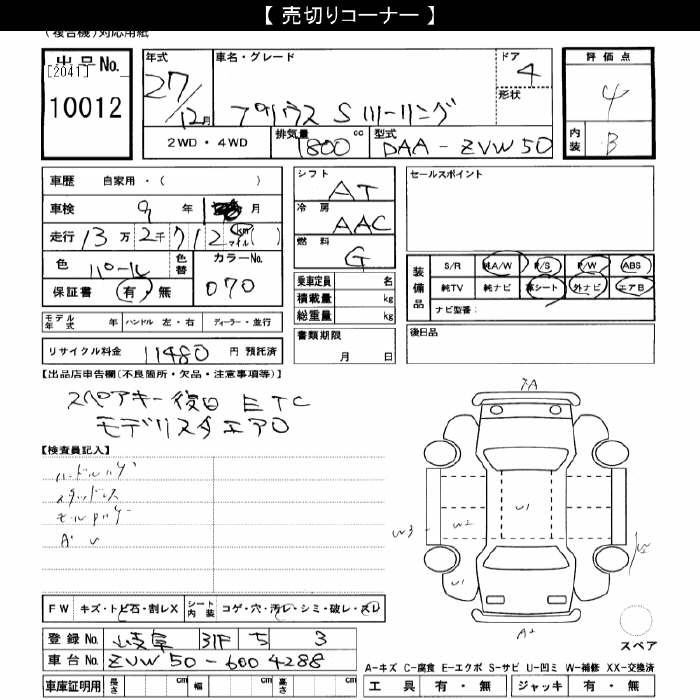 【 売切りコーナー 】
(複合機)対応用紙
出品No.
[2041]
10012
年式
27/12月
車名・グレード
プリウス S ツーリング
ドア
4
形状
評価点
4
内装
B
2WD・4WD
排気量
1800
cc
型式
DAA-ZVW50
車歴 自家用・( )
車検 9年 月
走行 13万2千712 km マイル ( )
色 パール 色替
カラーNo.
070
保証書 有・無
シフト
AT
冷房
AAC
燃料
G
乗車定員 名
積載量 kg
総重量 kg
書類期限
月 日
セールスポイント
装備品
S/R 純A/W P/S P/W ABS
純TV 純ナビ 革シート 外ナビ エアB
ナビ型番:
後日品
モデル年式 年 ハンドル 左・右 ディーラー・並行
リサイクル料金 11480 円 預託済
【出品店申告欄(不良箇所・欠品・注意事項等)】
スペアキー後日 ETC
モデリスタエアロ
【検査員記入】
スタッドレス
FW キズ・トビ石・割レX シート内装 コゲ・穴・汚レ・シミ・破レ・スレ
登録No. 岐阜 31F ち 3
車台No. ZVW50-6004288
車庫証明用 長さ cm 幅 cm 高さ cm
W3
W2
U1
U1
スペア
A-キズ C-腐食 E-エクボ S-サビ U-凹ミ W-補修 XX-交換済
工具 有・無 ジャッキ 有・無